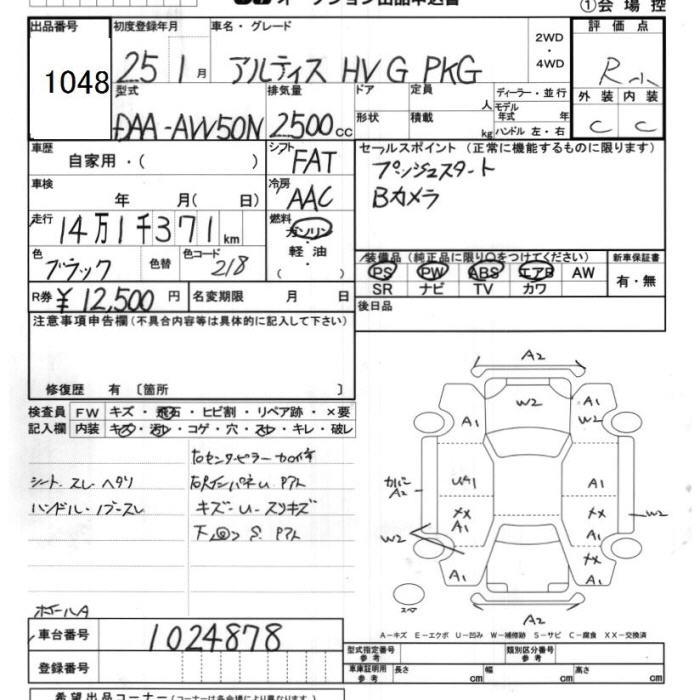 オークション出品申込書
①会場控
出品番号 1048
初度登録年月 25 1月
車名・グレード アルティス HV G PKG
2WD・4WD
評価点 R小
外装 C 内装 C
型式 DAA-AW50N
排気量 2500cc
ドア 形状
定員 人
積載 kg
ディーラー・並行
モデル年式 年
ハンドル 左・右
車歴 自家用・( )
シフト FAT
セールスポイント(正常に機能するものに限ります)
プッシュスタート
Bカメラ
車検 年 月( 日)
冷房 AAC
走行 14万1千371km
燃料 ガソリン 軽油 ( )
色 ブラック 色替 色コード 218
装備品(純正品に限り○をつけてください)
新車保証書
PS PW ABS エアB AW
有・無
SR ナビ TV カワ
R券 ¥12,500円
名変期限 月 日
後日品
注意事項申告欄(不具合内容等は具体的に記入して下さい)
修復歴 有 〔箇所 〕
検査員 FW キズ・飛石・ヒビ割・リペア跡・×要
記入欄 内装 キズ・汚レ・コゲ・穴・スレ・キレ・破レ
右センターピラー
シート スレ ヘタリ
ハンドル・ノブスレ
キズ-U-スリキズ
A2
W2
A1
A1
W2
カバー
A2
UA1
A1
XX
A1
XX
A1
W2
W2
XX
A1
A1
A2
A-キズ E-エクボ U-凹み W-補修跡 S-サビ C-腐食 XX-交換済
車台番号 1024878
登録番号
型式指定番号 参考
類別区分番号 参考
車庫証明用 参考 長さ cm 幅 cm 高さ cm
希望出品コーナー